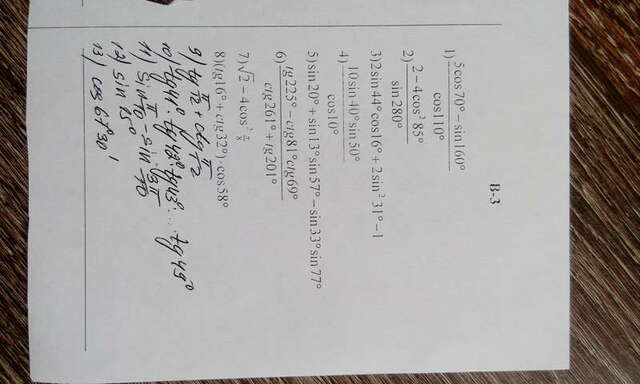 В-3
1) 5cos70° − sin160°
cos110°
2) 2 − 4cos²85°
sin280°
3) 2sin44°cos16° + 2sin²31° − 1
4) 10sin40°sin50°
cos10°
5) sin20° + sin13°sin57° − sin33°sin77°
6) tg225° − ctg81°ctg69°
ctg261° + tg201°
7) √2 − 4cos² π/8
8) (tg16° + ctg32°)·cos58°
9) tg π/12 + ctg π/12
10) tg41°·tg42°·tg43°·...·tg49°
11) sin π/10 − sin 3π/10
12) sin 15°
13) cos 67°30'